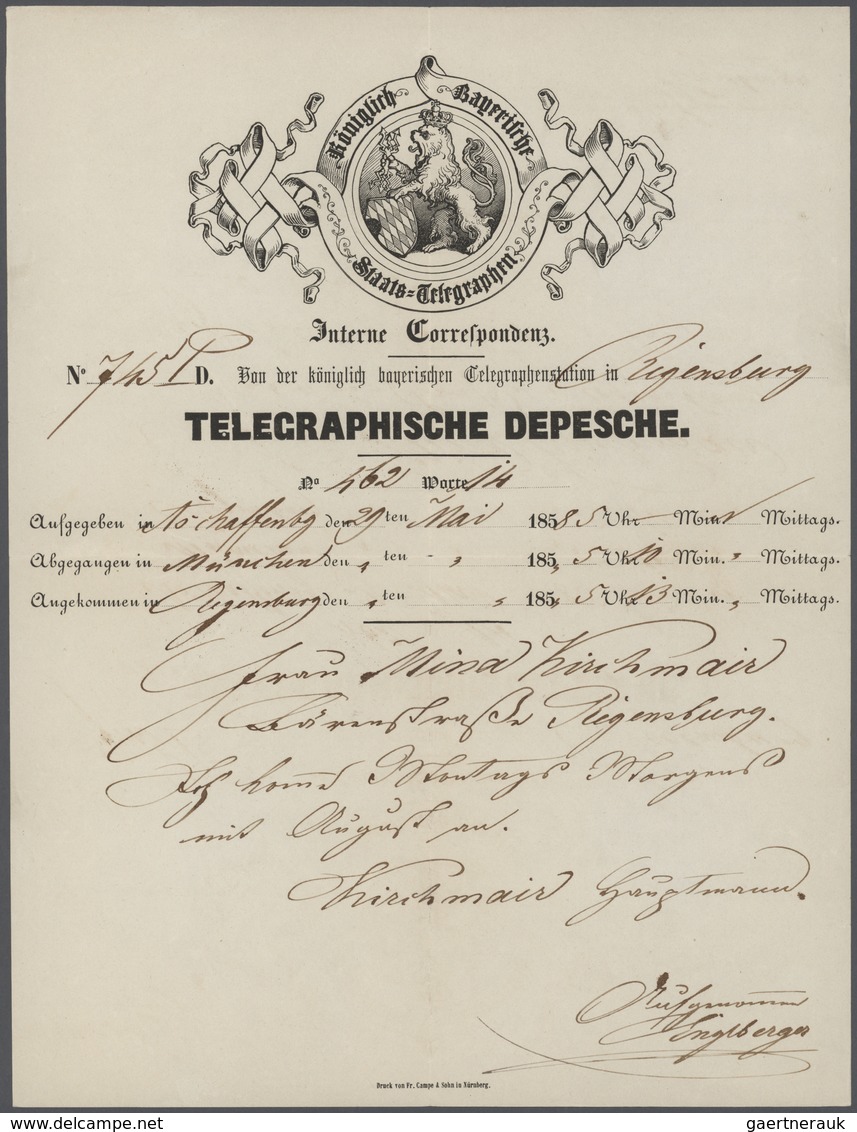 Königlich Bayerische
Staats=Telegraphen
Interne Correspondenz.
No 745 D. Von der königlich bayerischen Telegraphenstation in Regensburg
TELEGRAPHISCHE DEPESCHE.
No 462 Worte 14
Aufgegeben in Aschaffenbg den 29 ten Mai 1858 5 Uhr — Min. Mittags.
Abgegangen in München den „ ten - „ 185„ 5 Uhr 10 Min. „ Mittags.
Angekommen in Regensburg den „ ten „ 185„ 5 Uhr 13 Min. „ Mittags.
Frau Mina Kirchmair
Bärenstraße Regensburg.
Ich komme Montags Morgens
mit August an.
Kirchmair Hauptmann.
Aufgenommen
Druck von Fr. Campe & Sohn in Nürnberg.
delcampe.net
gaertnerauk